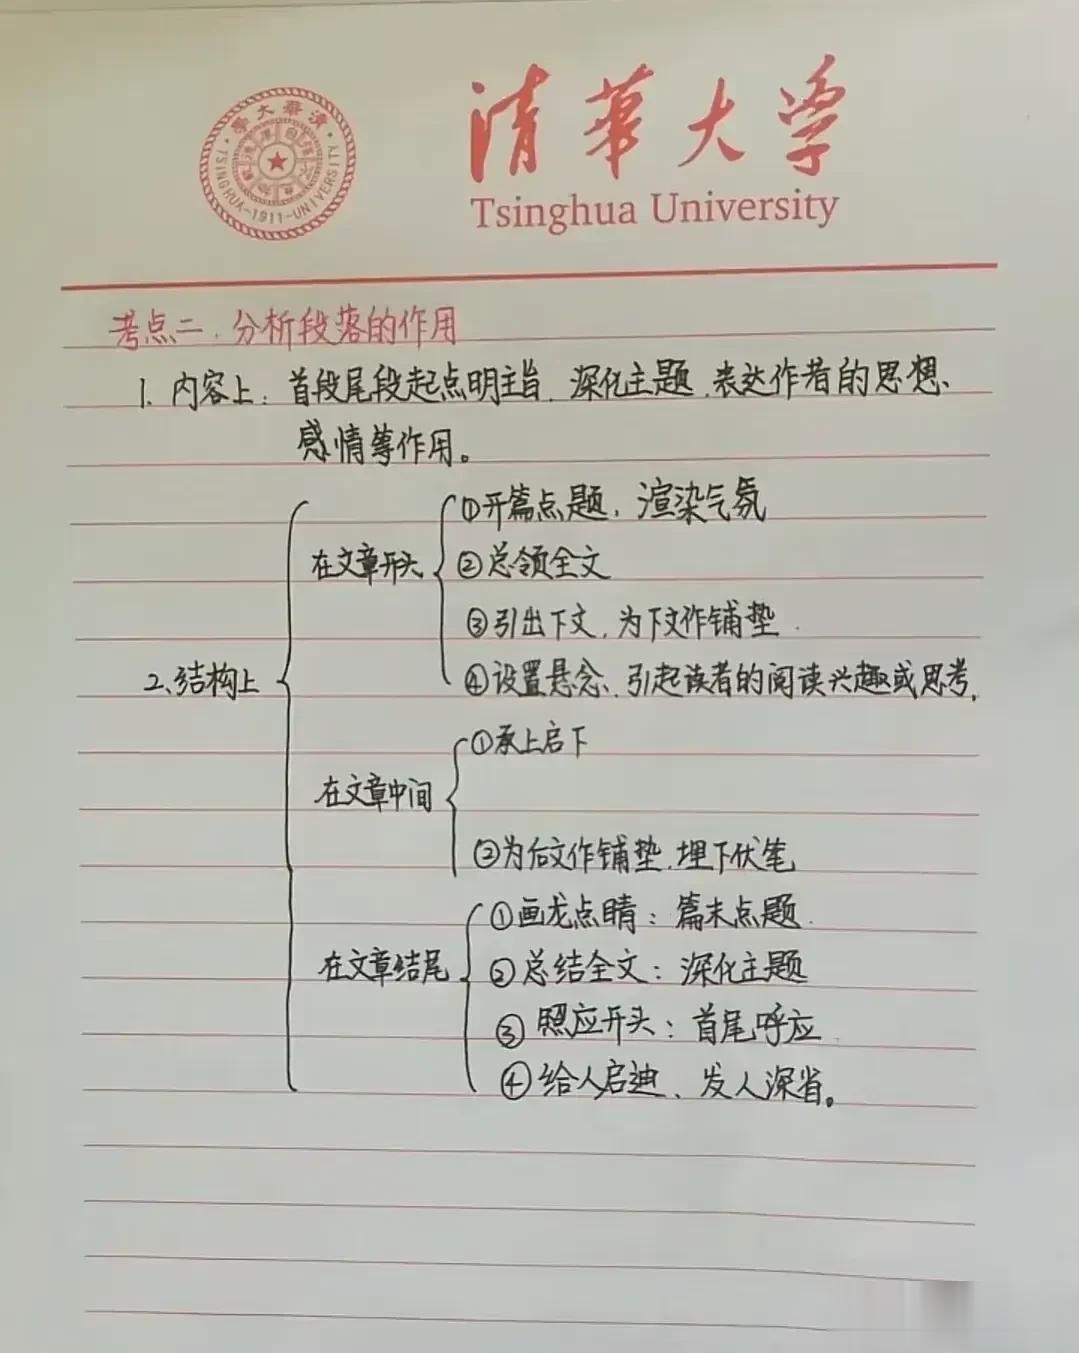 清華大学
Tsinghua University
清華大學
·TSINGHUA-1911-UNIVERSITY·
考点二.分析段落的作用
1. 内容上: 首段尾段起点明主旨. 深化主题.表达作者的思想、
感情等作用。
2、结构上
在文章开头
①开篇点题, 渲染气氛
②总领全文
③引出下文, 为下文作铺垫.
④设置悬念、引起读者的阅读兴趣或思考,
在文章中间
①承上启下
②为后文作铺垫.埋下伏笔
在文章结尾
①画龙点睛: 篇末点题.
②总结全文: 深化主题
③照应开头: 首尾呼应.
④给人启迪、发人深省。